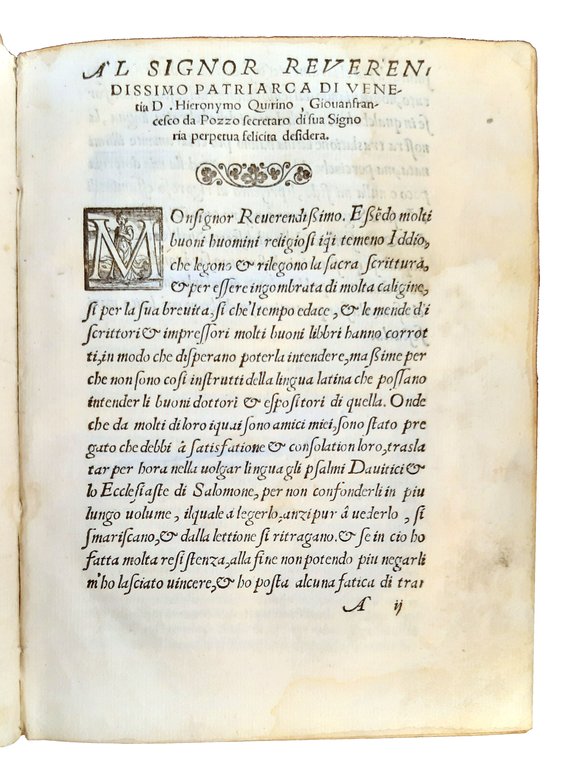 AL SIGNOR REVEREN-
DISSIMO PATRIARCA DI VENE-
tia D. Hieronymo Quirino, Giouanfran-
cesco da Pozzo secretaro di sua Signo
ria perpetua felicita desidera.
MOnsignor Reuerendissimo. Essēdo molti
buoni huomini religiosi iq̄i temeno Iddio,
che legono & rilegono la sacra scrittura,
& per essere ingombrata di molta caligine,
si per la sua breuita, si che'l tempo edace, & le mende d'i
scrittori & impressori molti buoni libbri hanno corrot
ti, in modo che disperano poterla intendere, massime per
che non sono cosi instrutti della lingua latina che possano
intender li buoni dottori & espositori di quella. Onde
che da molti di loro iquai sono amici miei, sono stato pre
gato che debbi à satisfatione & consolation loro, trasla
tar per hora nella uolgar lingua gli psalmi Dauitici &
lo Ecclesiaste di Salomone, per non confonderli in piu
lungo uolume, ilquale à legerlo, anzi pur â uederlo, si
smariscano, & dalla lettione si ritragano. & se in cio ho
fatta molta resistenza, alla fine non potendo piu negarli
m'ho lasciato uincere, & ho posta alcuna fatica di trar
A ij